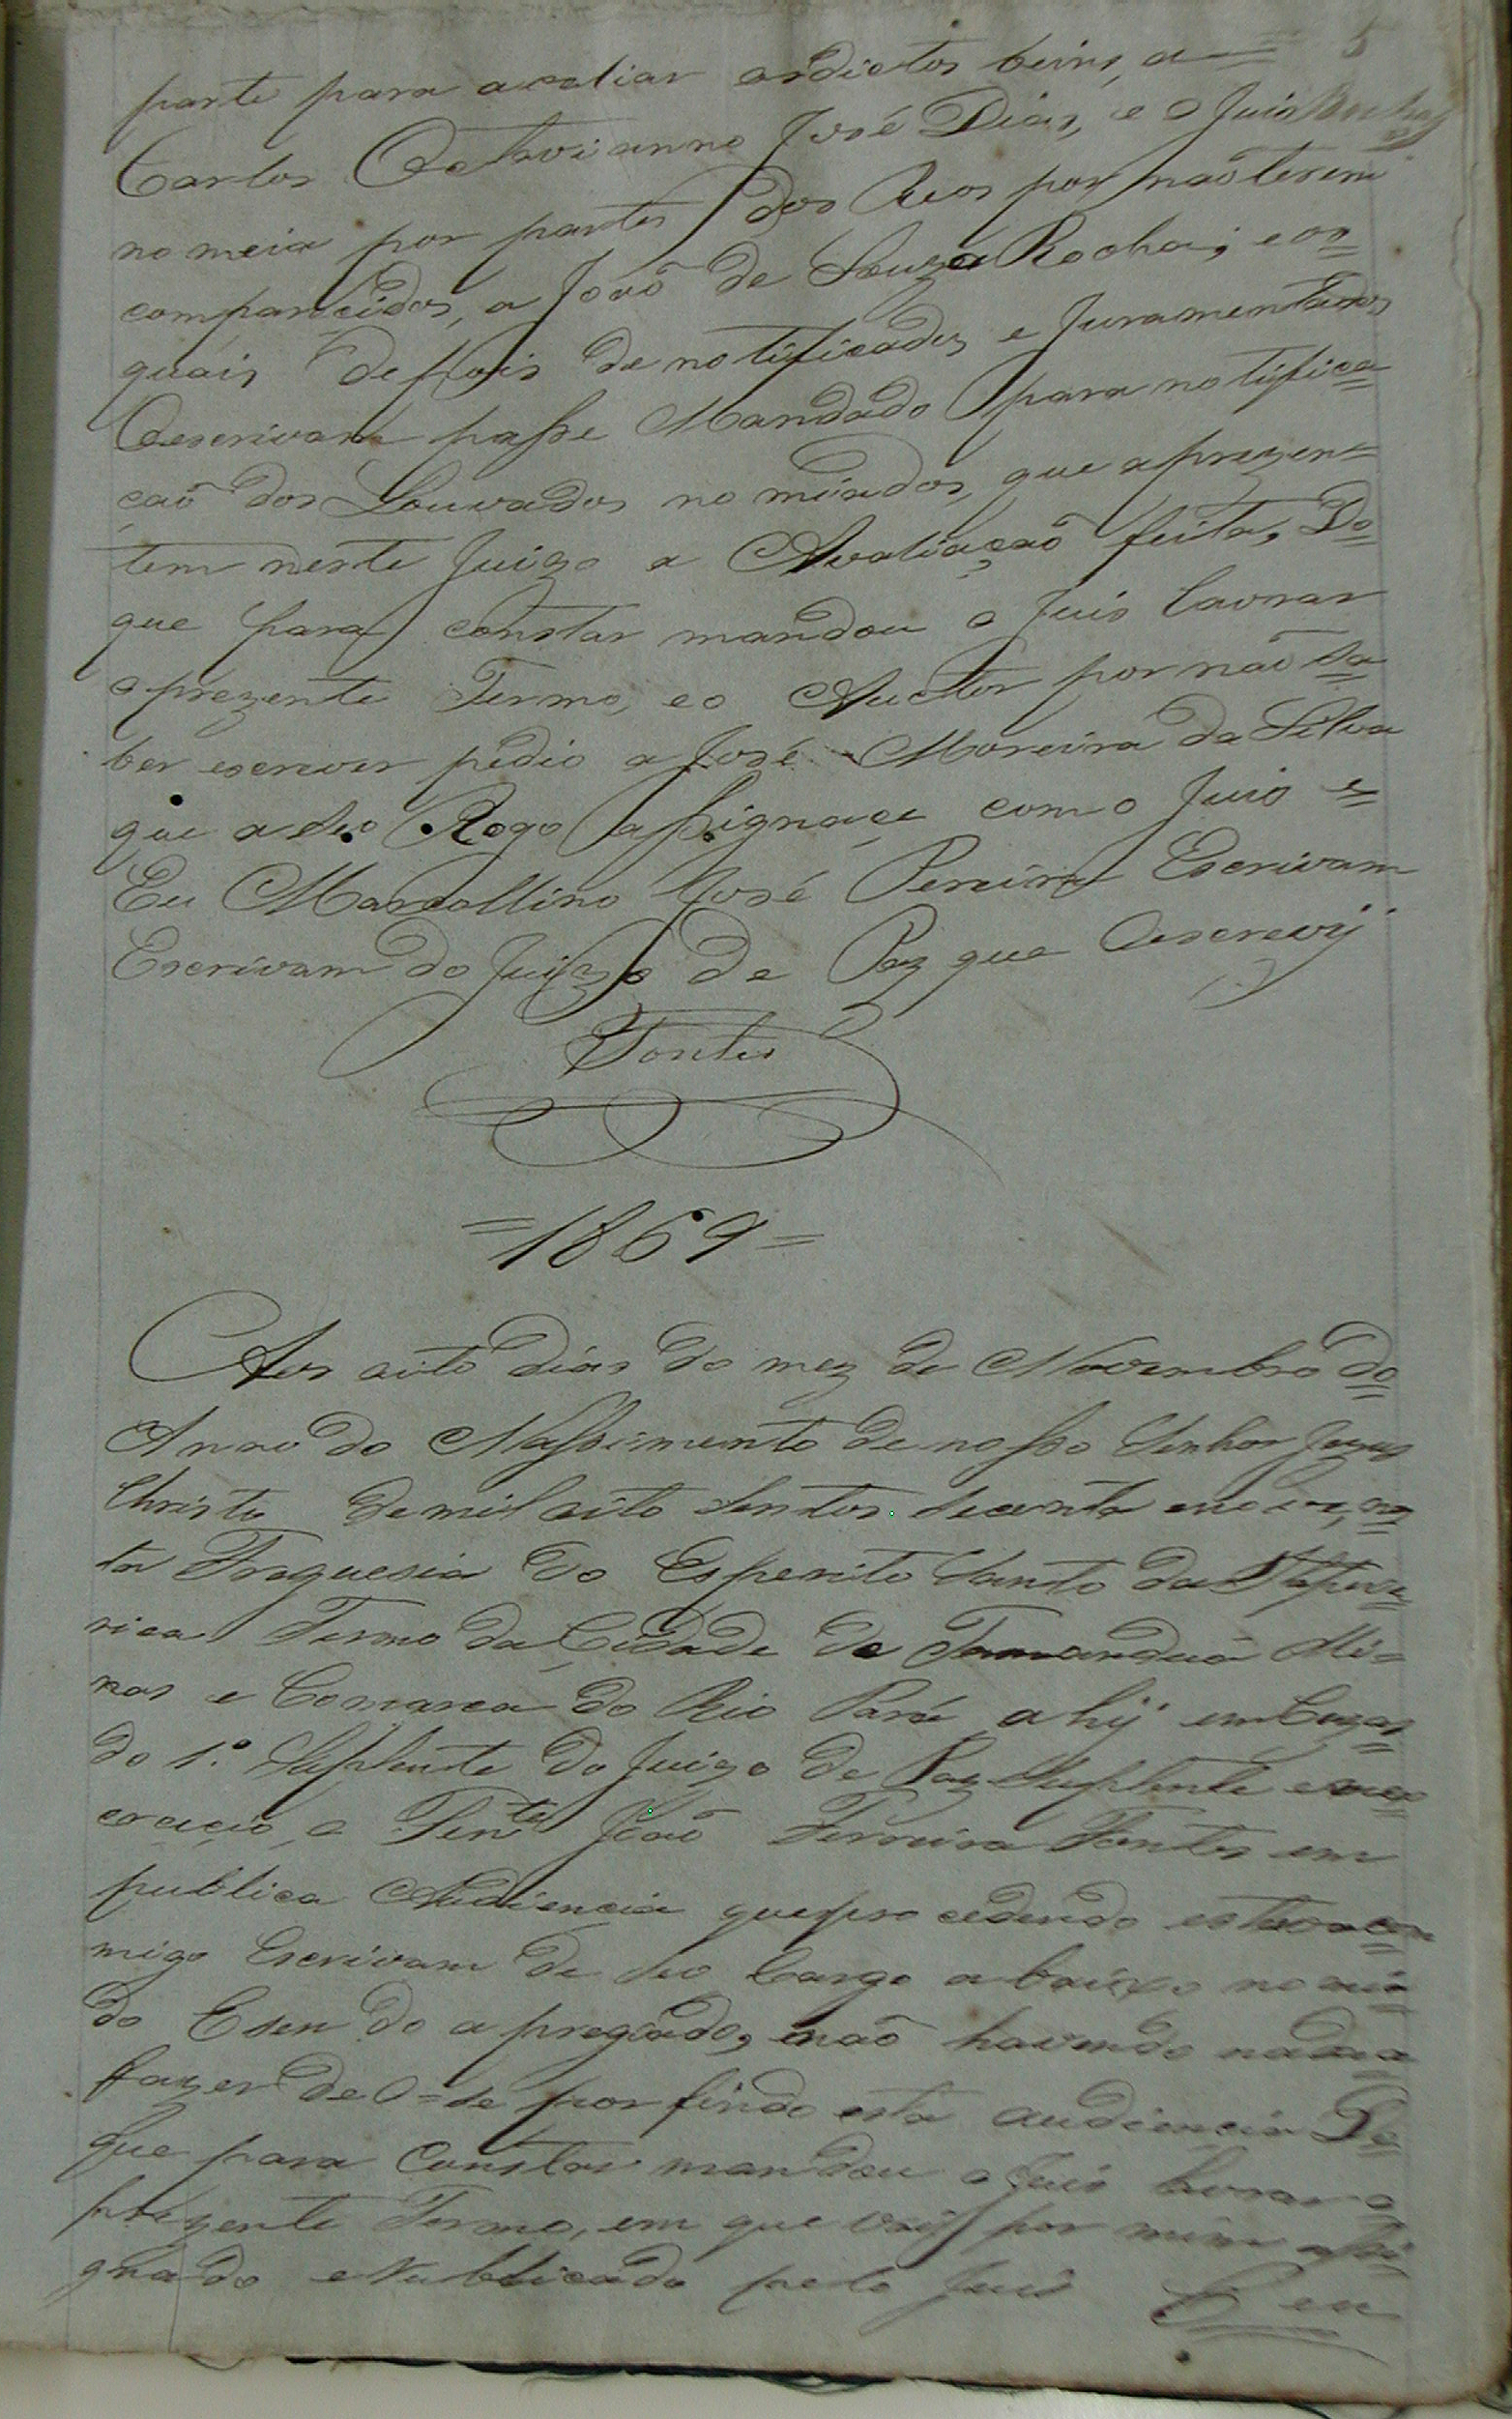 5
parte para avaliar os dictos beins, a
Carlos Octavianno José Dias, e o Juis
nomeia por partes dos Reos por não terem
comparecidos, a João de Souza Rocha; e os=
quais depois de notificados e Juramentados
Oescrivam passe Mandado para notifica=
ção dos Louvados nomiados, que aprezen=
tem neste Juizo a Avaliação feita, Do=
que para constar mandou o Juis lavrar
o prezente Termo, e o Auctor por não Sa=
ber escrever pedio a José Moreira da Silva
que a Seo Rogo assignaçe com o Juis e=
Eu Marcollino José Pereira Escrivam
Escrivam do Juizo de Paz que Oescrevÿ
Fontes
=1869=
Aos oito dias do mez de Novembro do=
Anno do Nassimento de nosso Senhor Jesus
Christo de mil oito Sentos Secenta e nove, nes=
ta Freguesia do Esperito Santo da Itapece=
rica Termo da Cidade de Tamanduá Mi=
nas e Comarca do Rio Pará ahÿ em Cazas
do 1.º Suplente do Juizo de Paz Suplente em ex=
ercicio, o Ten.te João Ferreira Fontes em
publica Audiencia que procedendo estava co=
migo Escrivam de Seo Cargo abaixo nomia=
do ESendo apregoado, não havendo nada a
fazer deO=se por findo esta audiencia De=
que para Constar mandou o Juis lavrar o
prezente Termo, em que vai por mim assi=
gnado e Rublicado pelo Juis Eeu